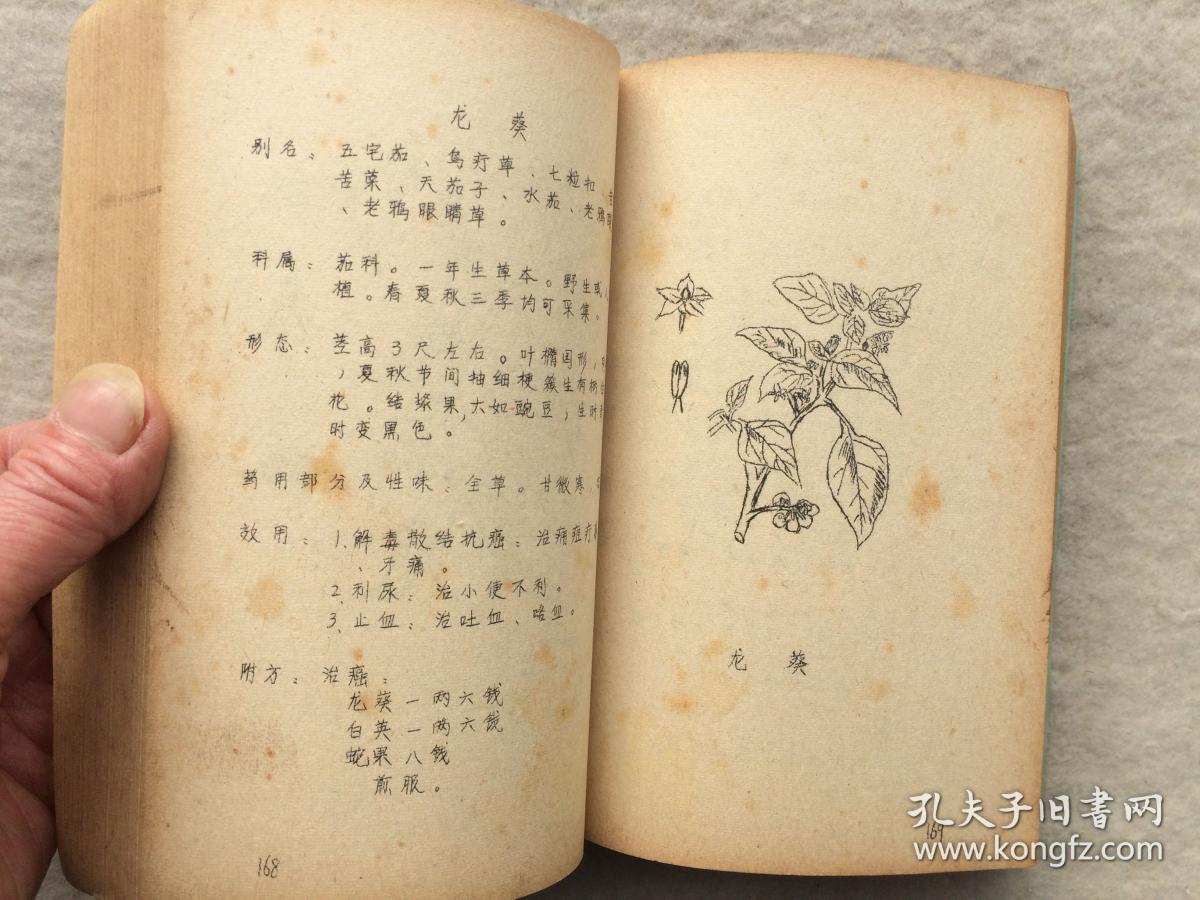 龙葵
别名：五宅茄、乌疔草、七粒扣、
苦菜、天茄子、水茄、老鸦眼
、老鸦眼睛草。
科属：茄科。一年生草本。野生或
植。春夏秋三季均可采集。
形态：茎高3尺左右。叶椭园形，
，夏秋节间抽细梗簇生有柄
花。结浆果，大如豌豆；生时
时变黑色。
药用部分及性味：全草。甘微寒，
效用：1.解毒散结抗癌：治痈疽疔
、牙痛。
2.利尿：治小便不利。
3.止血：治吐血、咯血。
附方：治癌：
龙葵一两六钱
白英一两六钱
蛇果八钱
煎服。
168
龙葵
169
孔夫子旧书网
www.kongfz.com